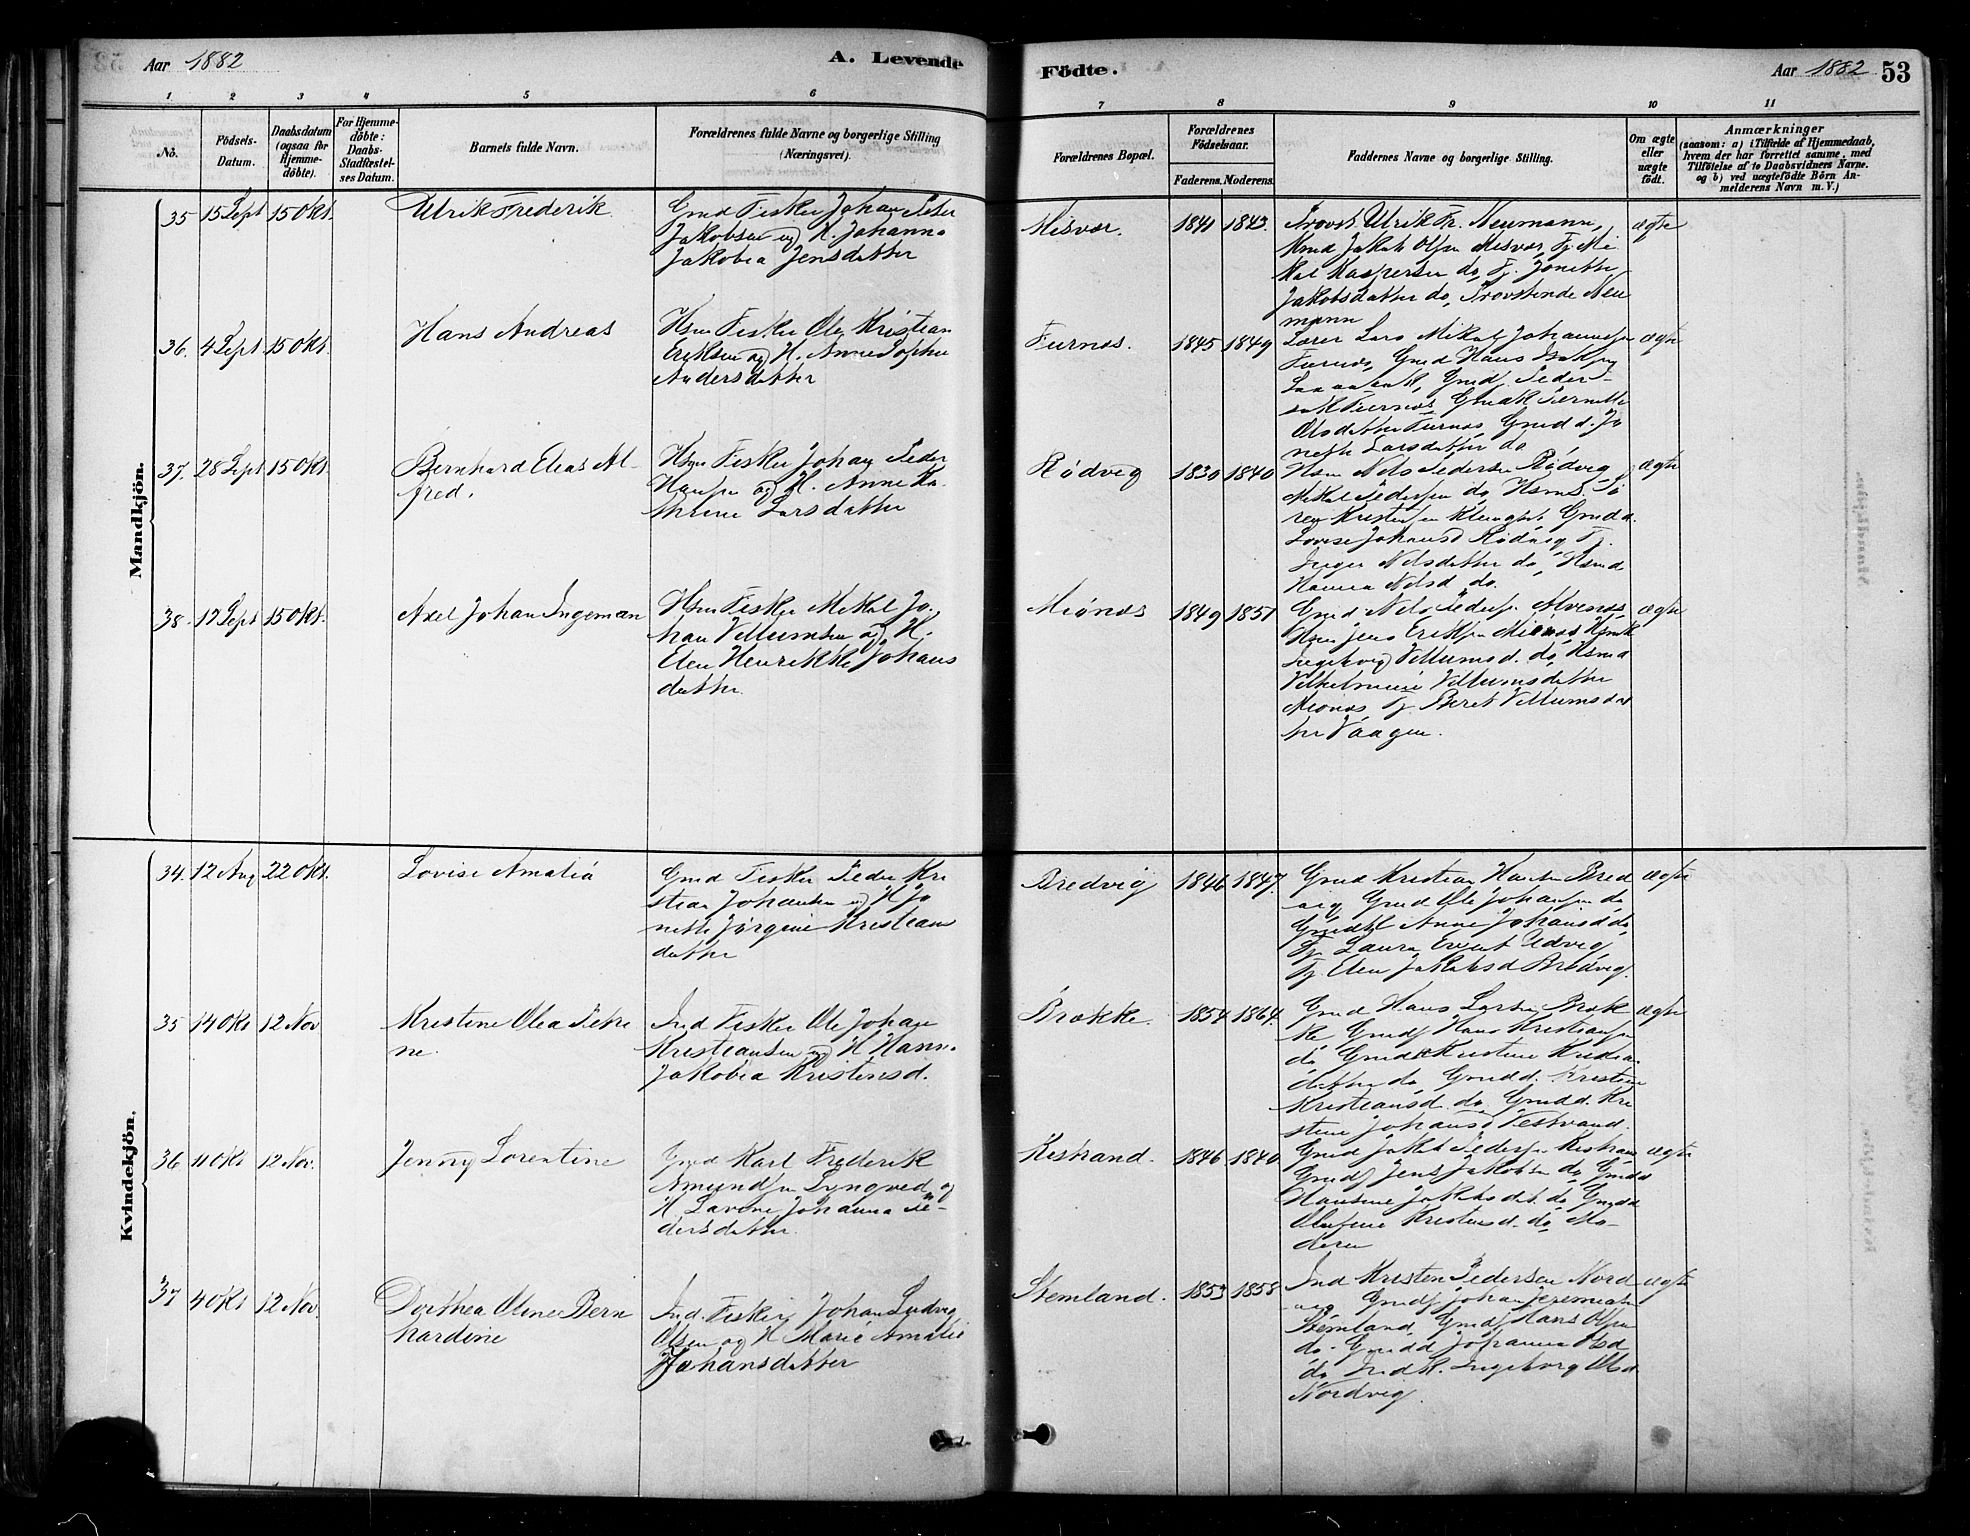 Aar 1882
A. Levende
Födte.
Aar 1882 53
1 2 3 4 5 6 7 8 9 10 11
No.
Födsels-Datum.
Daabsdatum (ogsaa for Hjemmedöbte).
For Hjemmedöbte: Daabs-Stadfæstelses Datum.
Barnets fulde Navn.
Forældrenes fulde Navne og borgerlige Stilling (Næringsvei).
Forældrenes Bopæl.
Forældrenes Födselsaar.
Faderens. Moderens.
Faddernes Navne og borgerlige Stilling.
Om ægte eller uægte födt.
Anmærkninger
(saasom: a) i Tilfælde af Hjemmedaab, hvem der har forrettet samme, med Tilföielse af to Daabsvidners Navne. og b) ved uægtefödte Börn Anmelderens Navn m. V.)
Mandkjön.
35 15 Sept 15 Okt. Ulrik Frederik.
Gmd Fisker Johan Peter
Jakobsen og H. Johanna
Jakobea Jensdatter
Misvær. 1841 1843.
Provst Ulrik Fr. Neumann,
Gmd Jakob Olsen Misvær, Tj. Mi
kal Kaspersen do, Tj. Jonette
Jakobsdatter do, Provstinde Neu
mann
ægte
36. 4 Sept. 15 Okt. Hans Andreas
Hsm Fisker Ole Kristian
Eriksen og H. Anne Sophie
Andersdatter
Furnes. 1845 1849
Lærer Lars Mikal Johannesen
Furnes, Gmd Hans
Gmd Peder
Furnes, Gmdk Pernille
Olsdatter Furnes, Gmd d. Jo
nette Larsdatter do
ægte
37. 28 Sept 15 Okt. Bernhard Elias Al-
fred.
Hsm Fisker Johan Peder
Hansen og H. Anne Ka
thrine Larsdatter
Rødvig 1830 1840
Hsm Nels Pedersen Rødvig
Mikal Pedersen do, Hsms. Sö
ren Kristensen Gmd d.
Lovise Johansd Rødvig Tj.
Inger Nelsdatter do, Hsmd
Hanna Nelsd do.
ægte
38. 17 Sept 15 Okt. Axel Johan Ingeman
Hsm Fisker Mikal Jo.
han Vellumsen og H.
Elen Henrikke Johans
datter.
Miønes 1849 1851
Gmd Nels Peders. Alvenes,
Hsm Jens Eriksen Miønes Hsmk
Ingeborg Vellumsd. do, Hsmd
Vilhelmine Vellumsdatter
Miønes Tj Beret Vellumsdat
ter Vaagen.
ægte
Kvindekjön.
34. 12 Aug 22 Okt. Lovise Amalia
Gmd Fisker Peder Kri
stian Johansen og H Jo
nette Jørgine Kristians
datter
Bredvig 1846 1847.
Gmd Kristian Hansen Bred
vig Gmd Ole Johansen do
Anne Johansd do,
Tj. Laura Evert Udvig
Tj. Elen Jakobsd Bredvig.
ægte
35 14 Okt 12 Nov Kristine Olea Petri
ne.
Ind Fisker Ole Johan
Kristiansen og H. Hanna
Jakobea Kristensd.
Brække. 1854 1864.
Gmd Hans Larsen Bræk
ke Gmds Hans Kristiansen
do Gmdk Kristine Kristian
datter do, Gmdd. Kristine
Kristiansd. do. Gmdd. Kri
stine Johansd Festvand.
ægte
36 11 Okt 12 Nov. Jenny Lorentine
Gmd Karl Frederik
Amundsen Lyngved og
H Lavine Johanna Pe-
dersdatter.
Kistrand. 1846 1840
Gmd Jakob Pedersen Kistran
Gmds Jens Jakobsen do, Gmdd
Hansine Jakobsdat. do, Gmdd
Olufine Kristensd. do, Mo-
deren
ægte
37 4 Okt 12 Nov Dorthea Oline Bern
hardine
Ind. Fisker Johan Ludvig
Olsen og H Marie Amalie
Johansdatter
Stemland. 1853 1858
Ind Kristen Pedersen Nord
vig Gmds Johan Jeremiasen
Stemland, Gmds Hans Olsen
do. Gmdd Johanna Olsd
do Indk. Ingeborg Olsd
Nordvig.
ægte